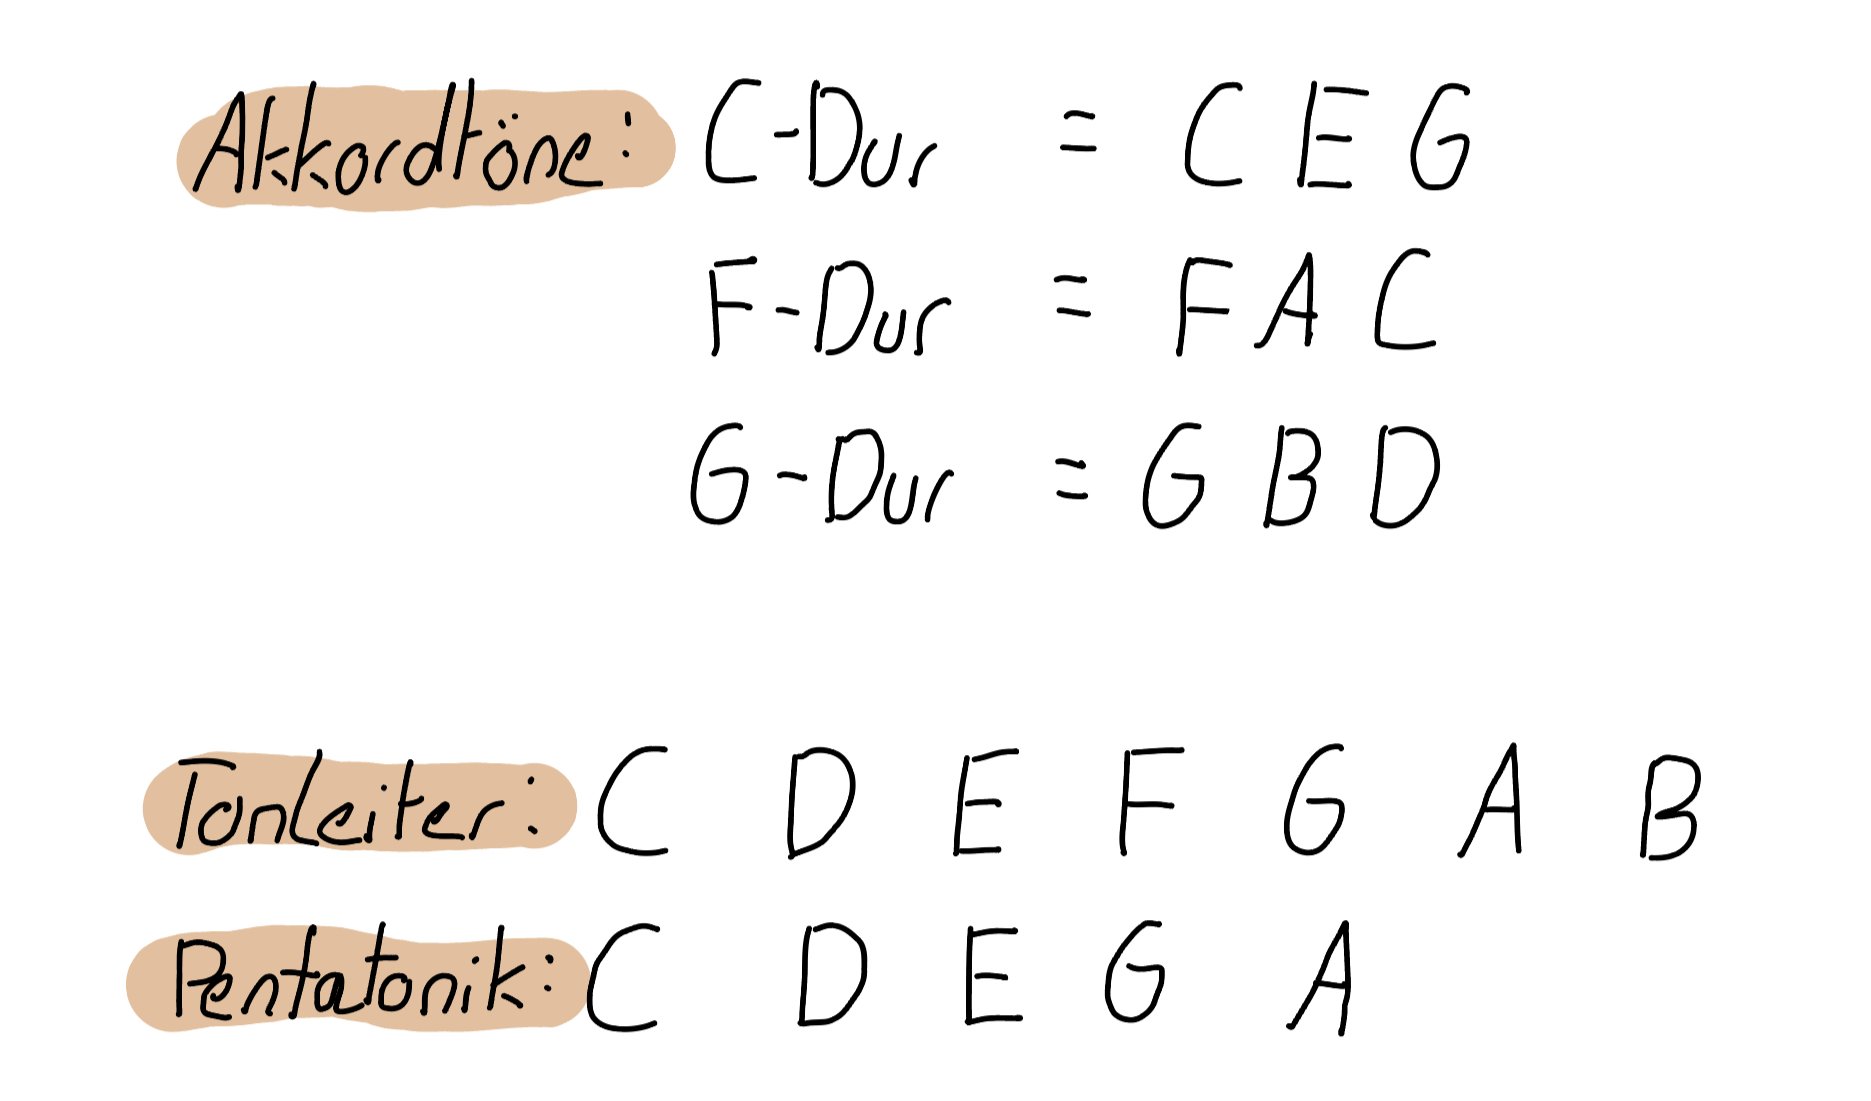 Akkordtöne: C-Dur = C E G
F-Dur = F A C
G-Dur = G B D
Tonleiter: C D E F G A B
Pentatonik: C D E G A